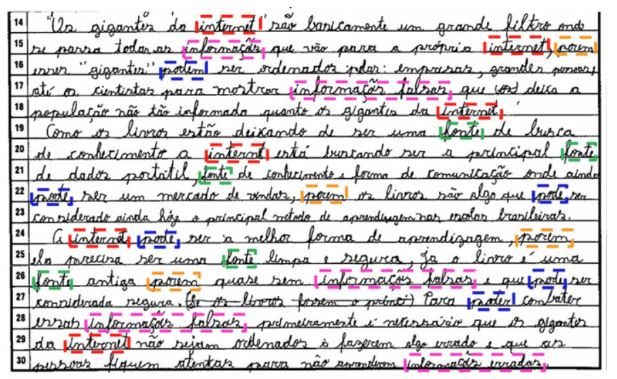 14 "Us gigantes da internet" são basicamente um grande filtro onde
15 se passa todas as informações que vão para a própria internet, porem
16 esses "gigantes" podem ser ordenados pelas: empresas, grandes pessoas,
17 até os cientistas para mostrar informações falsas, que (os) deixa a
18 população não tão informada quanto os gigantes da internet.
19 Como os livros estão deixando de ser uma fonte de busca
20 de conhecimento a internet está buscando ser a principal fonte
21 de dados portatil, fonte de conhecimento e forma de comunicação onde ainda
22 pode ser um mercado de vendas, porem os livros são algo que pode ser
23 considerado ainda hoje o principal metodo de aprendizagem nas escolas brasileiras.
24 A internet pode ser a melhor forma de aprendizagem, porem,
25 ela precisa ser uma fonte limpa e segura, ja o livro é uma
26 fonte antiga porem quase sem informações falsas e que pode ser
27 considerada segura. (Se os livros fossem o princi) Para poder combater
28 essas informações falsas, primeiramente é necessário que os gigantes
29 da internet não sejam ordenados a fazerem algo errado e que as
30 pessoas fiquem atentas para não aprenderem informações erradas.